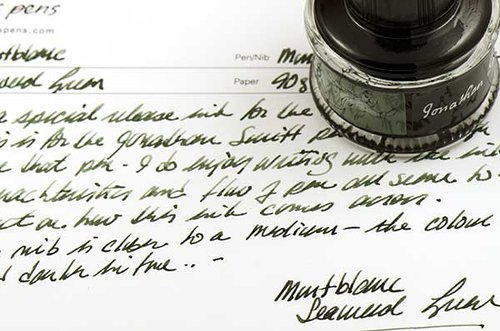 pens
spens.com
Montblanc Pen/Nib Mon
Seaweed Green Paper 90g
a special release ink for the
is is for the Jonathan Swift pe
that pen. I do enjoy writing with the ink
characteristics and flow of pen all seem to
on how this ink comes across.
nib is closer to a medium – the colour
darker in tone . . –
Montblanc
Seaweed Green
Jonathan S